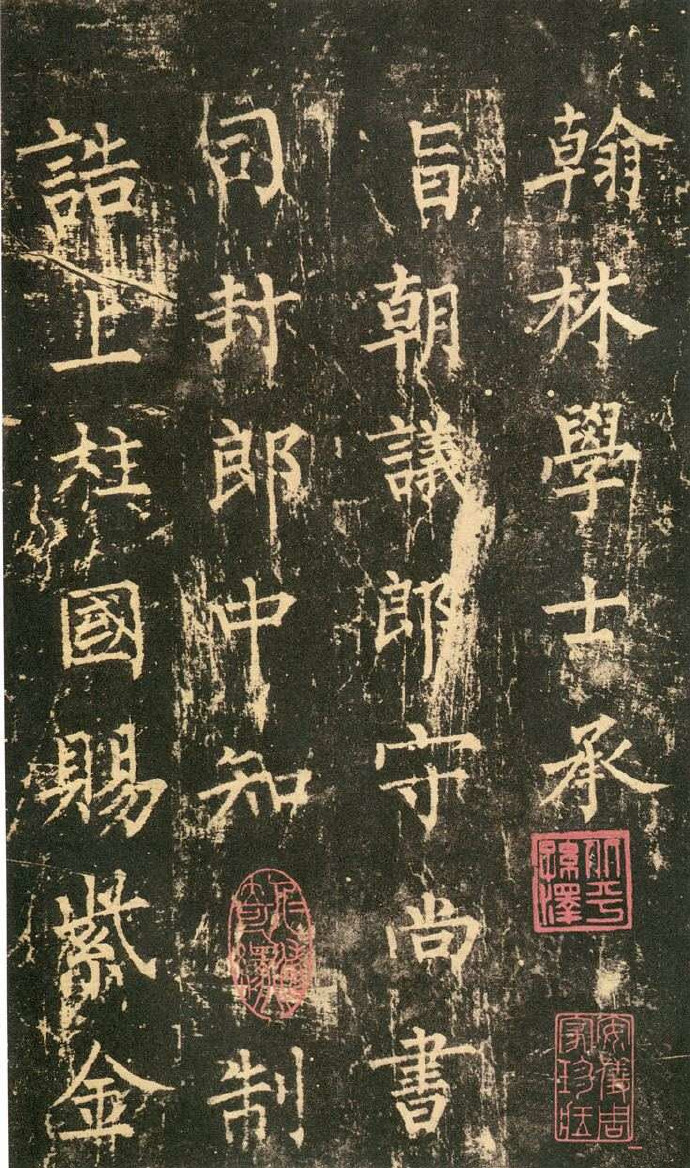 翰林學士承
旨朝議郎守尚書
司封郎中知 制
誥上柱國賜紫金
安儀周家珍藏